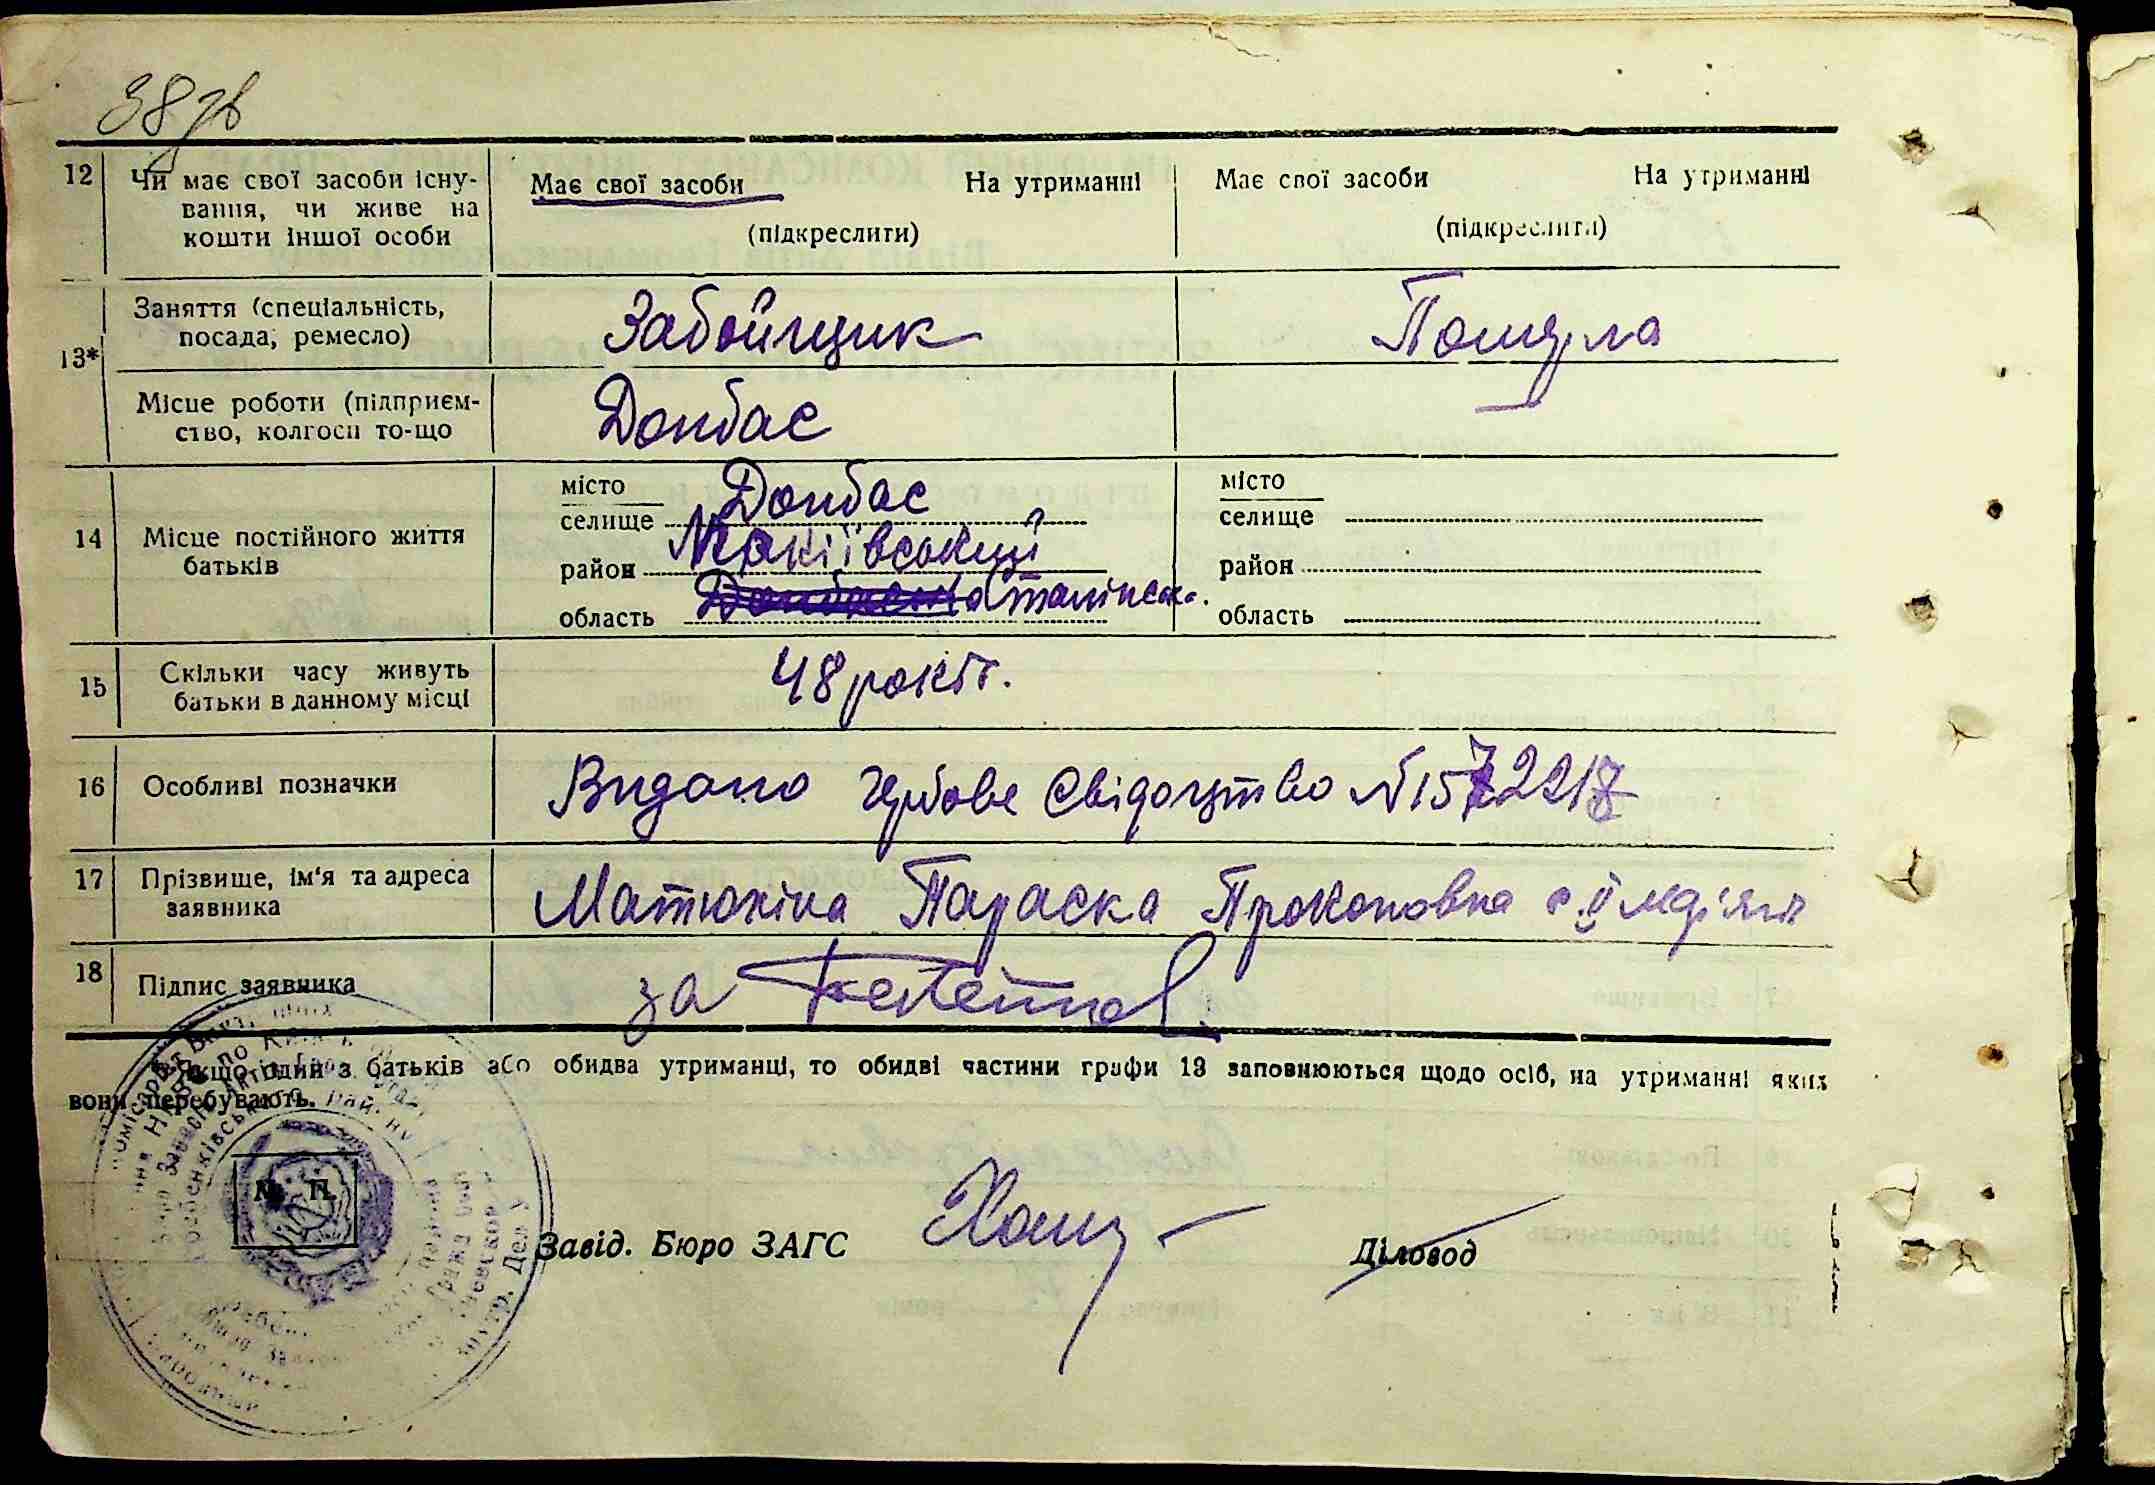 38
12 Чи має свої засоби існу-
вання, чи живе на
кошти іншої особи
Має свої засоби На утриманні
(підкреслити)
Має свої засоби На утриманні
(підкреслити)
13*
Заняття (спеціальність,
посада, ремесло)
Забойщик
Померла
Місце роботи (підприєм-
ство, колгосп то-що
Донбас
14 Місце постійного життя
батьків
місто
селище Донбас
район Макіївський
область Сталінськ.
місто
селище
район
область
15 Скільки часу живуть
батьки в данному місці
48 років.
16 Особливі позначки
Видано гербове свідоцтво N
17 Прізвище, ім'я та адреса
заявника
Матюхіна Параска Прокоповна
18 Підпис заявника
за
Якщо один з батьків або обидва утриманці, то обидві частини графи 13 заповнюються щодо осіб, на утриманні яких
вони перебувають.
М. П.
Завід. Бюро ЗАГС
Діловод